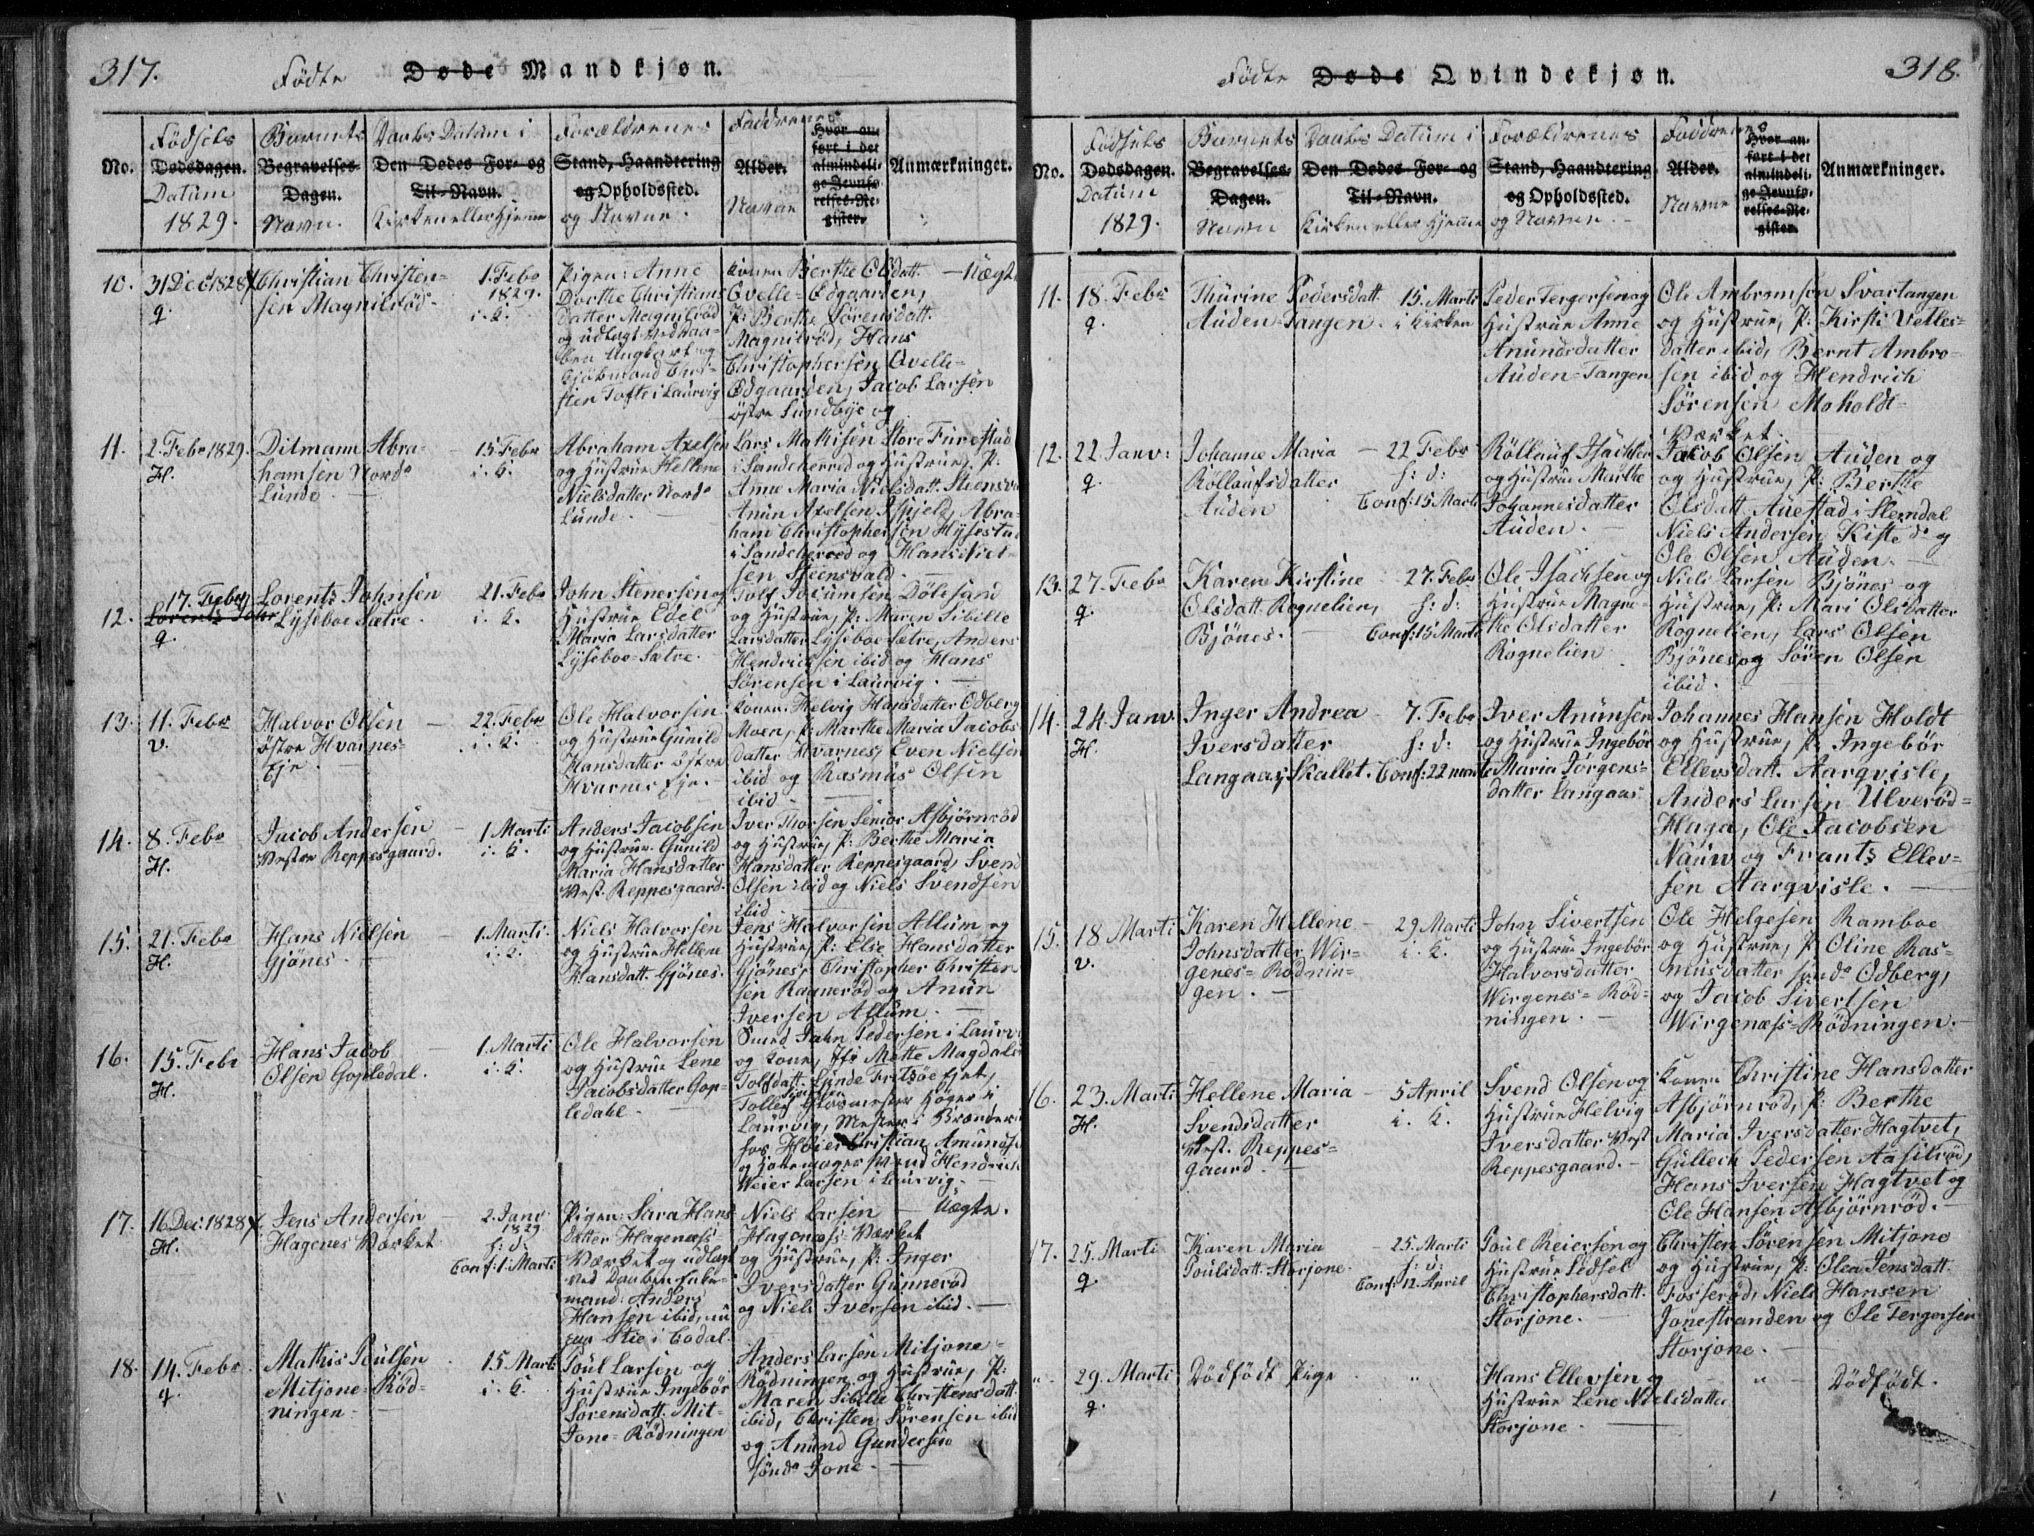 317.
Fødte Døde Mandkjøn.
No.
Fødsels
Dødsdagen.
Datum
1829.
Barnets
Begravelses-
Dagen.
Navn.
Daabs Datum i
Den Dødes For- og
Til-Navn.
Kirken eller Hjemme
Forældrenes
Stand, Haandtering
og Opholdssted.
og Navne.
Faddrenes
Alder.
Navne
Hvor an-
ført i det
almindeli-
ge Jevnfø-
relses-Re-
gister.
Anmærkninger.
10.
31 Dec: 1828
q.
Christian Christen-
sen Magnilrød.
1. Febr
1829.
i. K.
Pigen: Anne
Dorthe Christians
datter Magnilrød
og udlagt ved Daa-
ben Ungkarl og
Sjømand Chri-
sten Tofte i Laurvig
Konen Berthe Olsdatt. — Uægte
Qvelle-Odgaarden,
P: Berthe Sørensdatt.
Magnilrød, Hans
Christophersen Qvelle-
Odgaarden, Jacob Larsen
østre Sundbye og
11.
2. Febr 1829.
H.
Ditmann Abra-
hamsen Nordr
Lunde
15 Febr
i. K.
Abraham Axelsen
og Hustrue Hellene
Nielsdatter Nordr
Lunde.
Lars Mathisen Store Furestad
i Sandeherred og Hustrue, P:
Anne Maria Nielsdatt. Steensv
Anun Axelsen Skjeld, Abra-
ham Christophersen Hysestad
i Sandeherred og Hans Niel-
sen Steensvald. —
12.
17. Febr
Lorents John
q.
Lorents Johnsen
Lyseboe Sætre.
21. Febr
i. K.
John Stenersen og
Hustrue Edel
Maria Larsdatter
Lyseboe-Sætre.
Tolf Jocumsen Dölesand
og Hustrue, P: Maren Sibille
Larsdatter Lyseboe-Sætre, Anders
Hendrichsen ibid og Hans
Sørensen i Laurvig. —
13.
11. Febr
v.
Halvor Olsen
østre Hvarnes-
Eje.
22. Febr
i. K.
Ole Halvorsen
og Hustrue Gunild
Hansdatter østre
Hvarnes Eje.
Konen Helvig Hansdatter Odberg
Moen, P: Marthe Maria Jacobs
datter Hvarnes, Even Nielsen
ibid og Rasmus Olsen
ibid.
14.
8. Febr
H.
Jacob Andersen
Vestre Reppesgaard.
1 Marti
i. K.
Anders Jacobsen
og Hustrue Gunild
Maria Hansdatter
Vest. Reppesgaard.
Iver Thorsen Senior Asbjørnrød
og Hustrue, P: Berthe Maria
Hansdatter Reppesgaard, Svend
Olsen ibid og Niels Svendsen
ibid.
15.
21. Febr
H.
Hans Nielsen
Gjönes.
1. Marti
i. K.
Niels Halvorsen
og Hustrue Hellene
Hansdatt. Gjönes.
Jens Halvorsen Allum og
Hustrue, P: Elie Hansdatter
Gjönes, Christopher Christen
sen Ragnerød og Anun
Iversen Allum. —
16.
15. Febr
H.
Hans Jacob
Olsen Gopledal.
1. Marti
i. K.
Ole Halvorsen
og Hustrue Lene
Jacobsdatter Gop-
ledahl.
Smed Jahn Pedersen i Laurv
og Kone, Jfr Mette Magdale
Tolfsdatt. Lunde Fritsöe Ejet,
Tollef Glasmester Höger i
Laurvig, Mester i Brænderi
hos Høier Christian Amunds
og Hattemager svend Hendrich
Weier Larsen i Laurvig. —
17.
16 Dec: 1828
H.
Jens Andersen
Hagenes Værket
2. Janv
1829.
h: d:
Conf: 1. Marti
Pigen Sara Hans
datter Hagenæss
Værket og udlagt
ved Daaben Enke-
mand Anders
Hansen ibid, nu
paa Stie i Codal.
Niels Larsen — Uægte.
Hagenæss Værket
og Hustrue, P: Inger
Iversdatter Gunnerød
og Niels Iversen ibid. —
18.
14. Febr.
q.
Mathis Poulsen
Mitjone-Rød-
ningen.
15. Marti
i. K.
Poul Larsen og
Hustrue Ingebør
Sørensdatt. Mit-
Jone-Rødningen
Anders Larsen Mitjone-
Rødningen og Hustrue, P:
Maren Sibille Christensdatt.
ibid, Christen Sørensen ibid
og Anund Gundersen
søndr Jone. —
318.
Fødte Døde Qvindekjøn.
No.
Fødsels
Dødsdagen.
Datum
1829.
Barnets
Begravelses-
Dagen.
Navn
Daabs Datum i
Den Dødes For- og
Til-Navn.
Kirken eller Hjemme
Forældrenes
Stand, Haandtering
og Opholdssted.
og Navne.
Faddrenes
Alder.
Navne
Hvor an-
ført i det
almindeli-
ge Jevnfø-
relses-Re-
gister.
Anmærkninger.
11.
18. Febr
q.
Thurine Pedersdatt.
Auden-Tangen.
15. Marti
i Kirken
Peder Tergersen og
Hustrue Anne
Anundsdatter
Auden-Tangen
Ole Ambromsen Svartangen
og Hustrue, P: Kirsti Velles-
datter ibid, Bernt Ambro-
sen ibid og Hendrich
Sørensen Moholdt-
Værket.
12.
22 Janv:
q.
Johanne Maria
Röllaufsdatter
Auden
22 Febr
h: d:
Conf: 15 Marti
Röllauf Isachsen
og Hustrue Marthe
Johannesdatter
Auden.
Jacob Olsen Auden og
og Hustrue, P: Berthe
Olsdatt. Auestad i Slemdal
Niels Andersen Kiste do og
Ole Olsen Auden. —
13.
27. Febr
q.
Karen Kirstine
Olsdatt. Rognelien,
Bjönes.
27. Febr
h: d:
Conf: 15 Marti
Ole Isachsen og
Hustrue Magne-
the Olsdatter
Rognelien
Niels Larsen Bjönes og
Hustrue, P: Mari Olsdatter
Rognelien, Lars Olsen
Bjönes og Søren Olsen
ibid.
14.
24 Janv
H.
Inger Andrea
Iversdatter
Langaas, Skallet.
7. Febr
h: d:
Conf: 22 marti
Iver Anunsen
og Hustrue Ingebør
Maria Jørgens-
datter Langaas
Johannes Hansen Holdt
og Hustrue, P: Ingebör
Ellevsdatt. Aarqvisle,
Anders Larsen Ulverød-
Haga, Ole Jacobsen
Nauw og Frants Ellev-
sen Aarqvisle.
15.
18 Marti
v.
Karen Hellene
Johnsdatter Wir-
genes-Rødnin-
gen.
29 Marti
i. K.
John Sivertsen
og Hustrue Ingebör
Halvorsdatter
Wirgenes-Rød-
ningen.
Ole Helgesen Ramboe
og Hustrue, P: Oline Ras-
musdatter søndr Odberg,
og Jacob Sivertsen
Wirgenæss-Rödningen.
16.
23. Marti
H.
Hellene Maria
Svendsdatter
Vest. Reppes-
gaard.
5 April
i. K.
Svend Olsen og
Hustrue Helvig
Iversdatter Vest
Reppesgaard.
Konen Christine Hansdatter
Asbjørnrød, P: Berthe
Maria Iversdatter Hagtvet,
Gullech Pedersen Aasilrød,
Hans Iversen Hagtvet og
Ole Hansen Asbjörnröd.
17.
25. Marti
q.
Karen Maria
Poulsdatt. Storjone.
25. Marti
h: d:
Conf: 12. April
Poul Reiersen og
Hustrue Sidsel
Christophersdatt.
Storjone.
Christen Sørensen Mitjone
og Hustrue, P: Olea Jensdatt.
Fosserød, Niels Hansen
Jonestranden og Ole Tergersen
Storjone.
"
29. Marti
q.
Dödfödt Pige
"
Hans Ellevsen og
Hustrue Lene Nielsdatter
Storjone
"
Dödfödt.